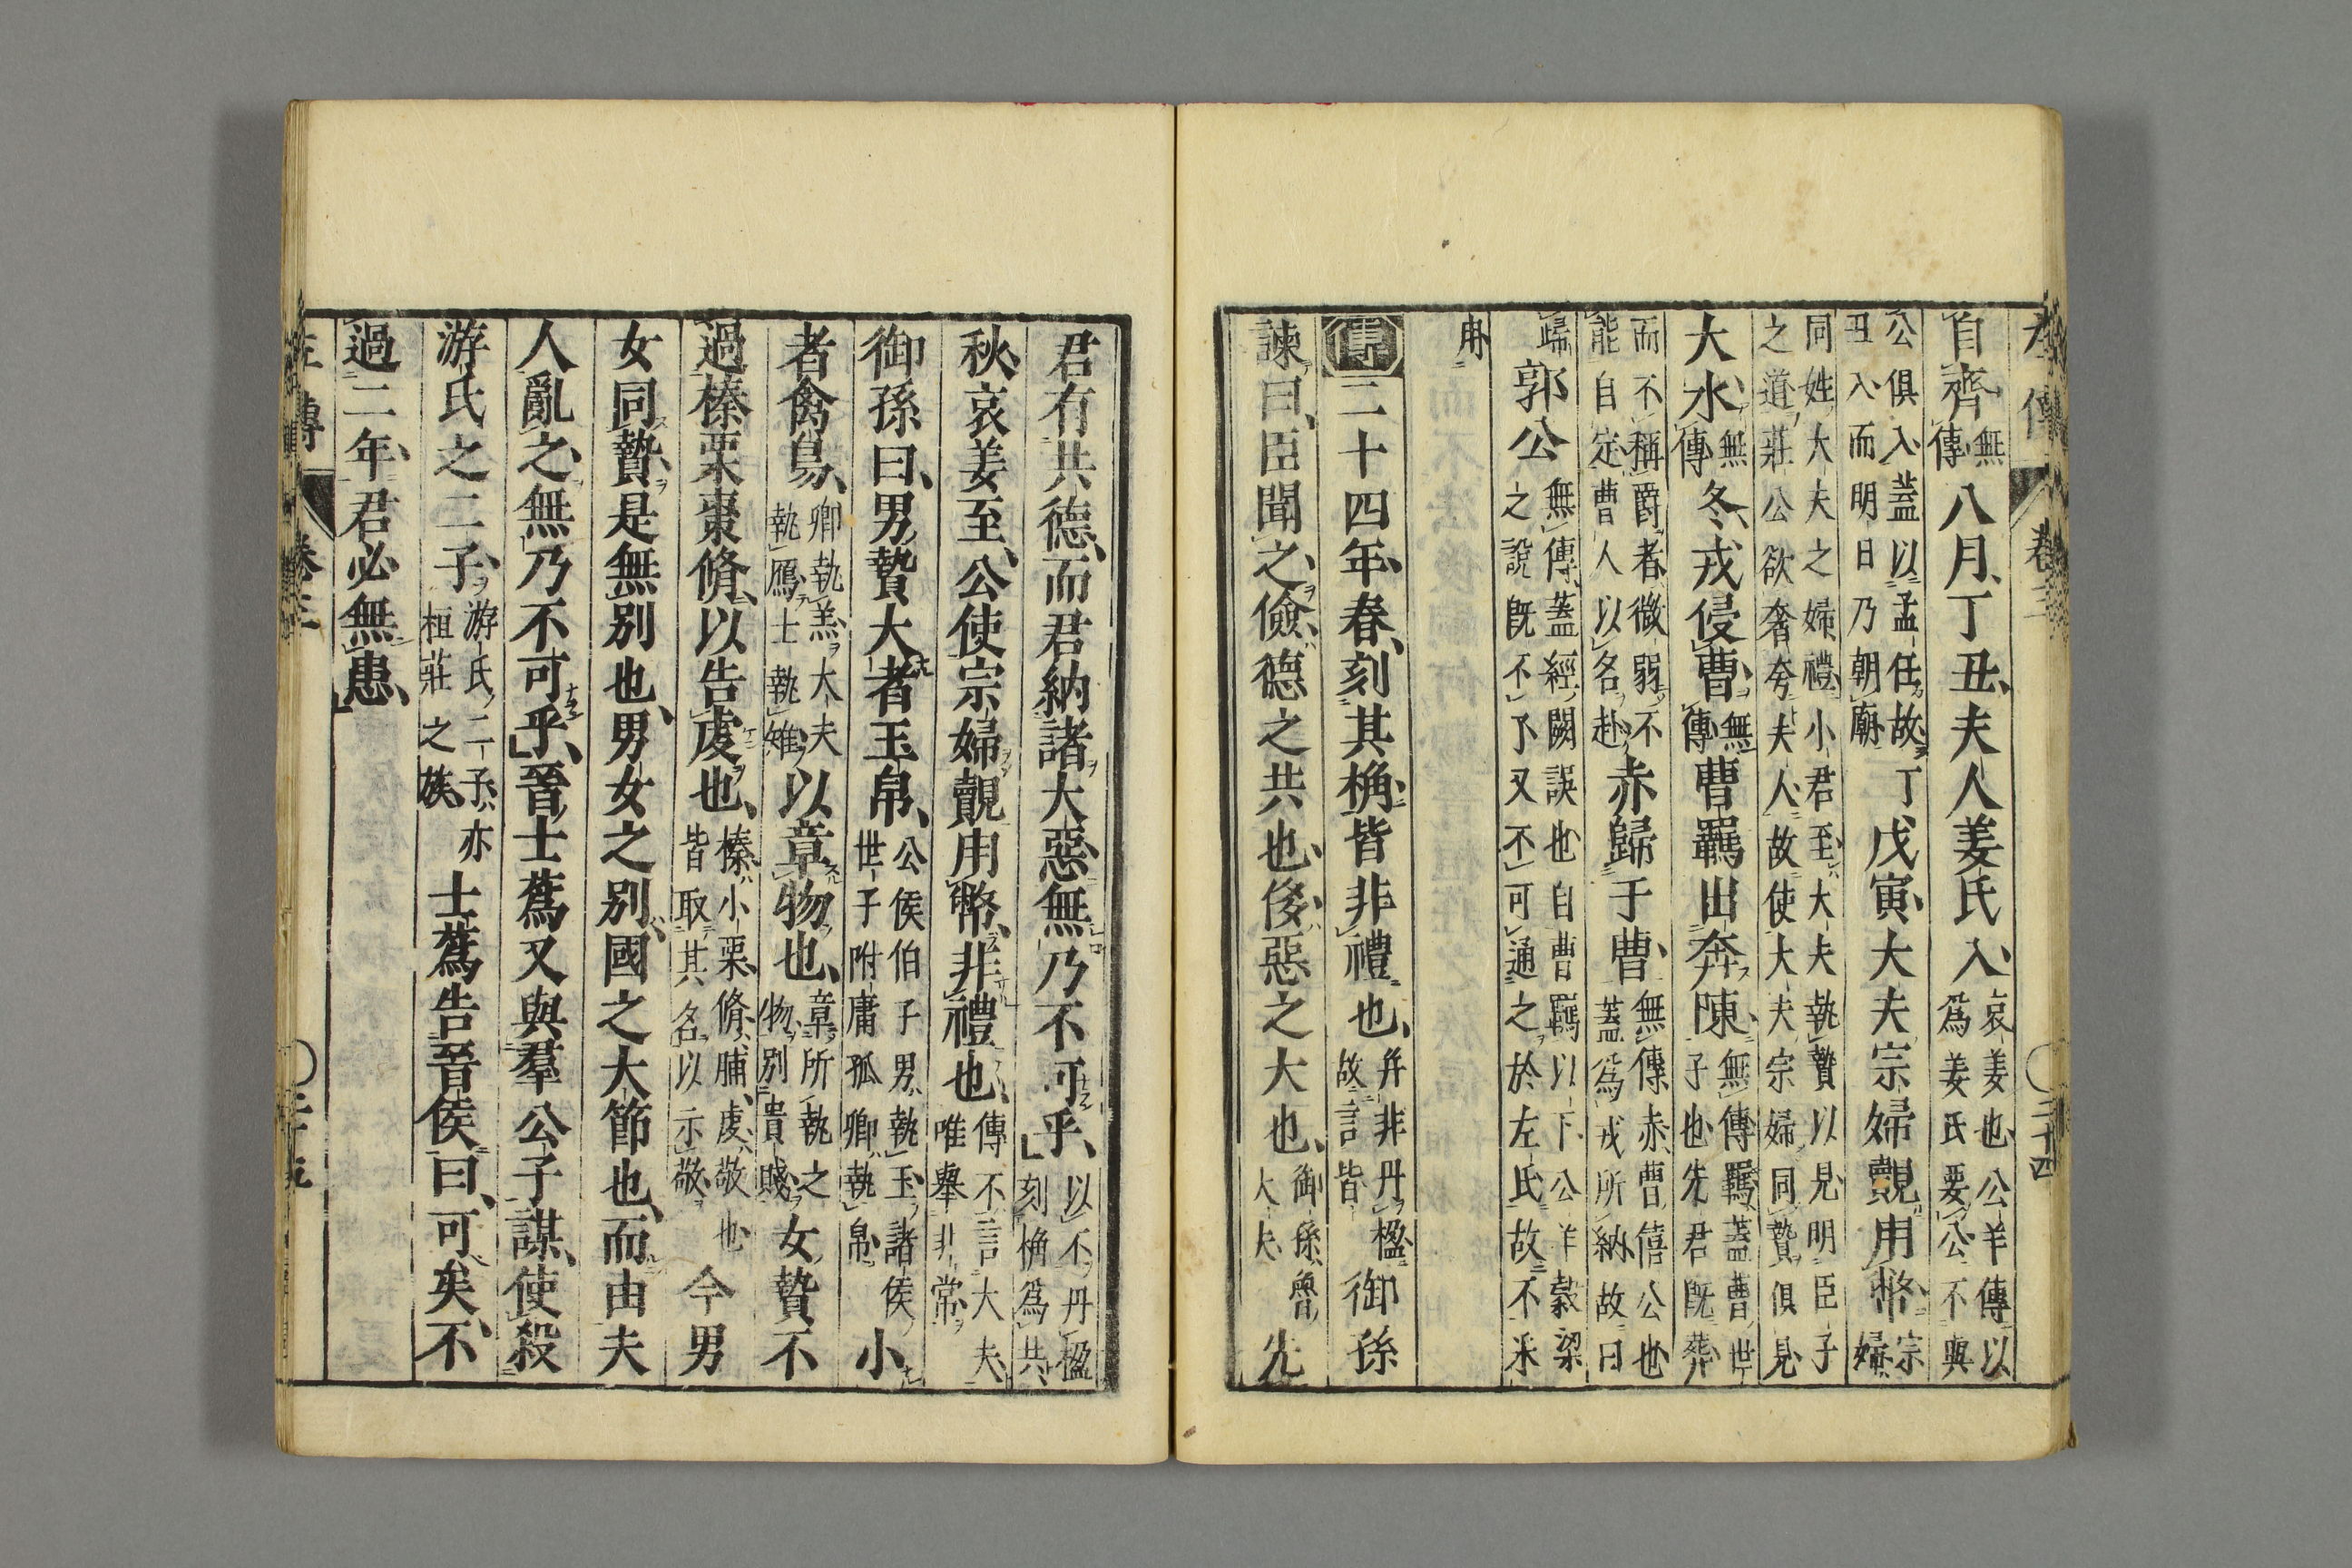 左傳 卷三 二十四
自齊無傳八月丁丑夫人姜氏入哀姜也公羊傳以爲姜氏要公不與
公俱入蓋以孟任故丁丑入而明日乃朝廟戊寅大夫宗婦覿用幣宗婦
同姓大夫之婦禮小君至大夫執贄以見明臣子之道莊公欲奢夸夫人故使大夫宗婦同贄俱見
大水無傳冬戎侵曹無傳曹羈出奔陳無傳羈蓋曹世子也先君既葬
而不稱爵者微弱不能自定曹人以名赴赤歸于曹無傳赤曹僖公也蓋爲戎所納故曰
歸郭公無傳蓋經闕誤也自曹羈以下公羊穀梁之說既不了又不可通之於左氏故不采
用
傳二十四年春刻其桷皆非禮也并非丹楹故言皆御孫
諫曰臣聞之儉德之共也侈惡之大也御孫魯大夫先
君有共德而君納諸大惡無乃不可乎以不丹楹刻桷爲共
秋哀姜至公使宗婦覿用幣非禮也傳不言大夫唯舉非常
御孫曰男贄大者玉帛公侯伯子男執玉諸侯世子附庸孤卿執帛小
者禽鳥卿執羔大夫執鴈士執雉以章物也章所執之物別貴賤女贄不
過榛栗棗脩以告虔也榛小栗脩脯虔敬也皆取其名以示敬今男
女同贄是無別也男女之別國之大節也而由夫
人亂之無乃不可乎晉士蔿又與羣公子謀使殺
游氏之二子游氏二子亦桓莊之族士蔿告晉侯曰可矣不
過二年君必無患
左傳 卷三 二十五